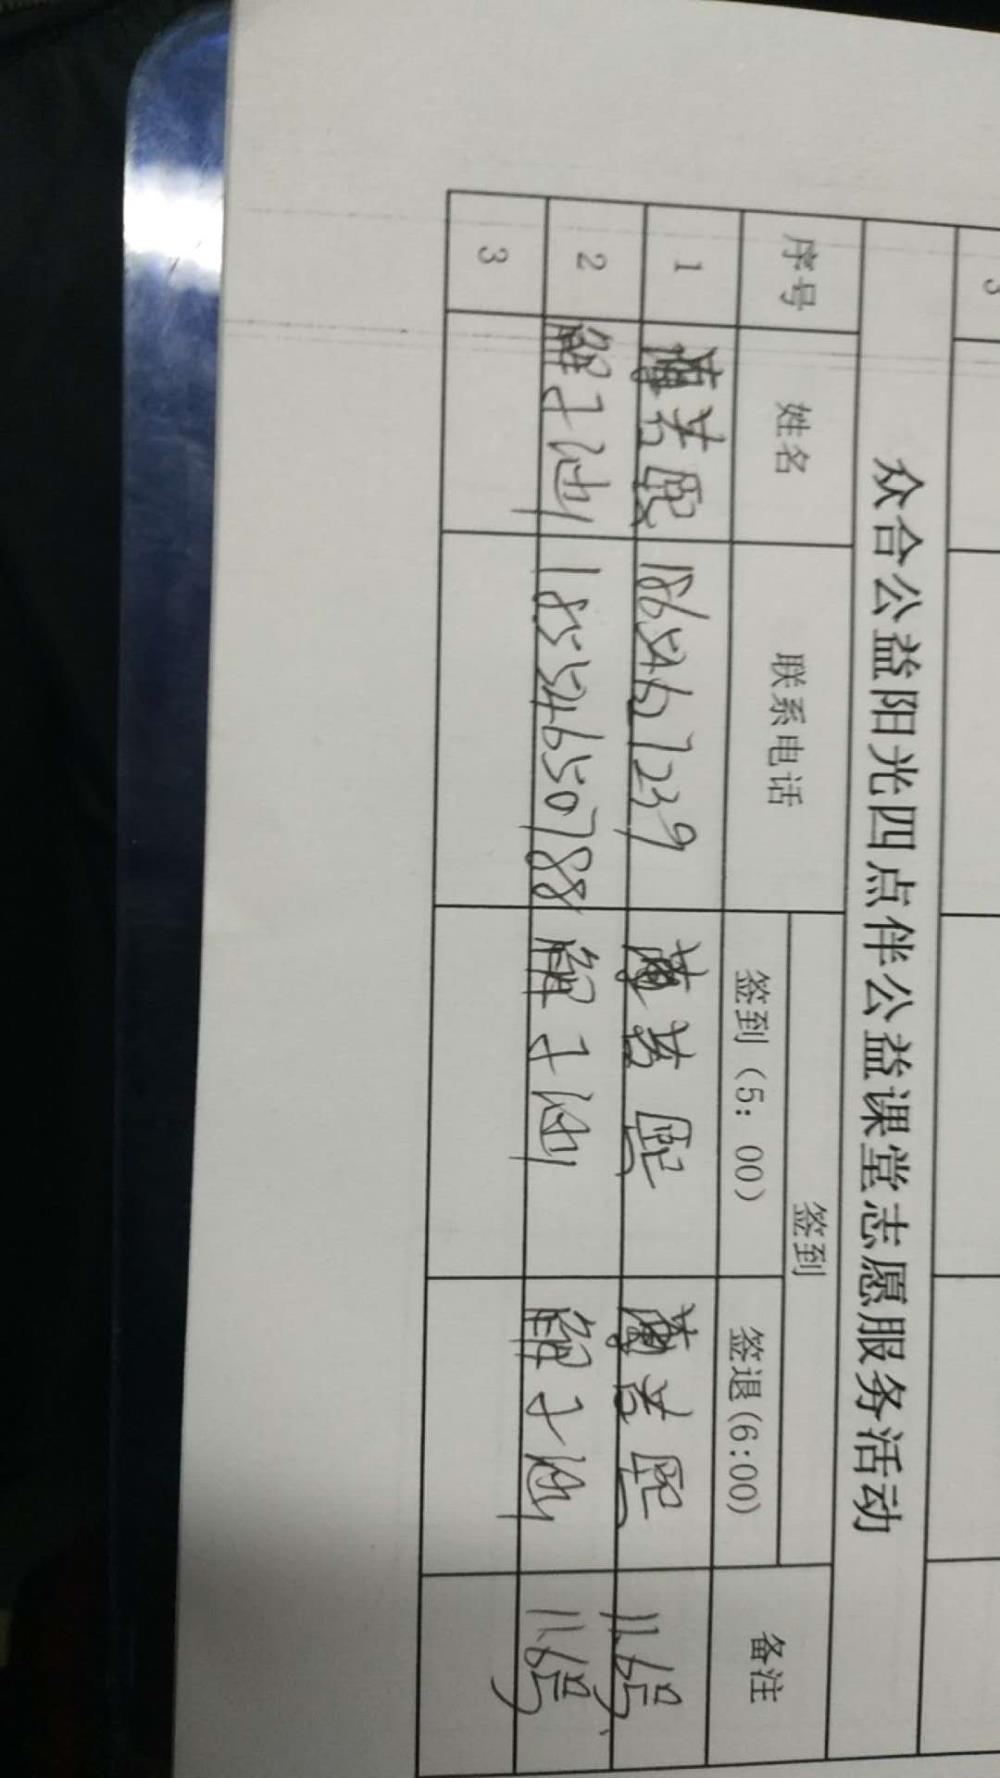 3
众合公益阳光四点伴公益课堂志愿服务活动
序号 姓名 联系电话 签到 备注
签到（5：00） 签退(6:00)
1 若熙 若熙 若熙 11.6号
2 解子涵 18554650788 解子涵 解子涵 11.6号
3